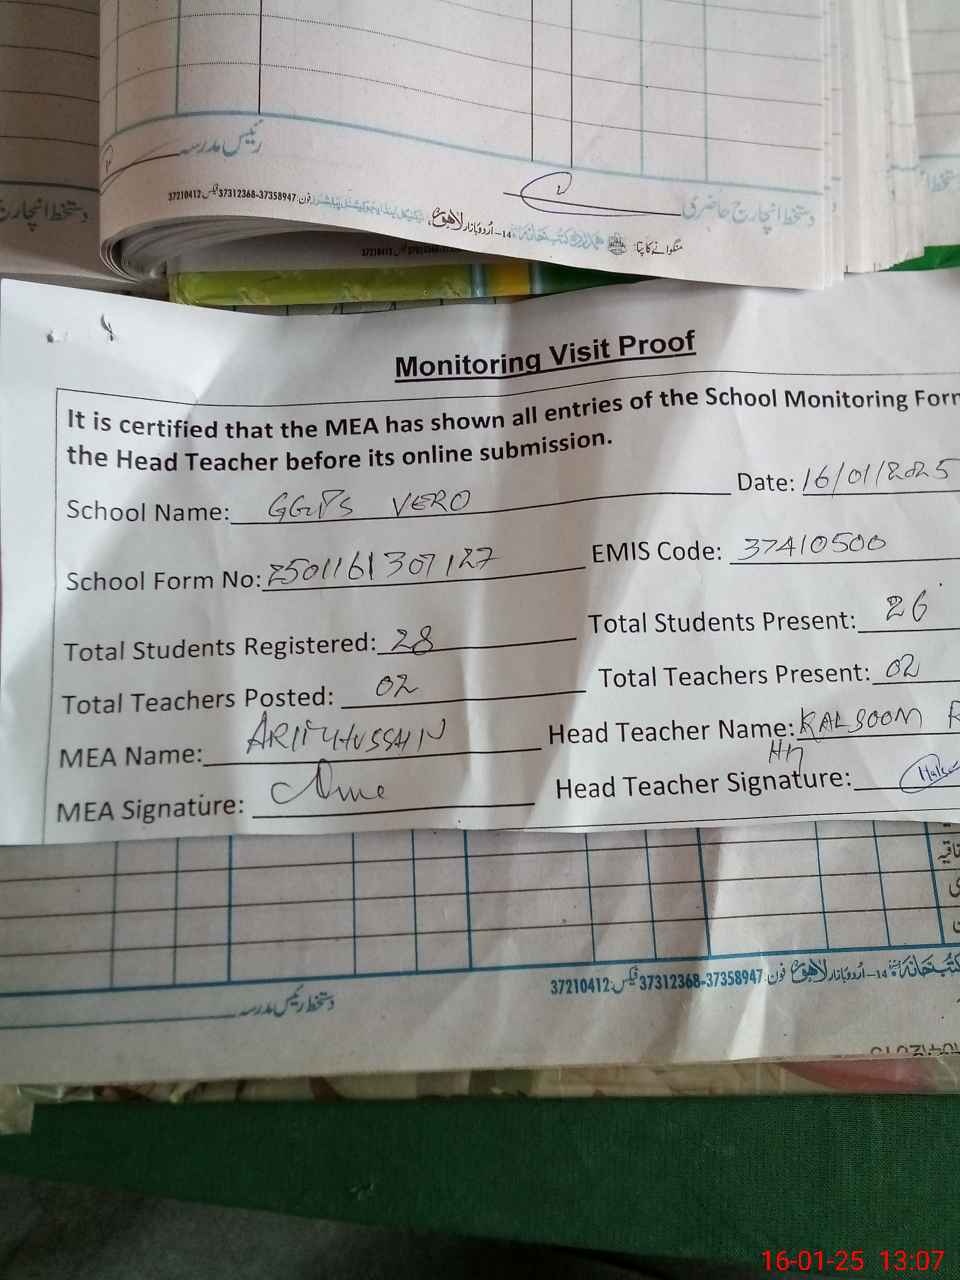 رئیس مدرسہ
دستخط انچارج حاضری
منگوانے کا پتا: ہمدرد کتب خانہ 14-اُردو بازار لاہور فون: 37358947-37312368 فیکس: 37210412
Monitoring Visit Proof
It is certified that the MEA has shown all entries of the School Monitoring Form
the Head Teacher before its online submission.
School Name: GGPS VERO Date: 16/01/2025
School Form No: 2501161307127 EMIS Code: 37410500
Total Students Registered: 28 Total Students Present: 26
Total Teachers Posted: 02 Total Teachers Present: 02
MEA Name: HUSSAIN Head Teacher Name: KALSOOM
MEA Signature: Head Teacher Signature:
کتب خانہ 14-اُردو بازار لاہور فون: 37358947-37312368 فیکس: 37210412
دستخط رئیس مدرسہ
16-01-25 13:07